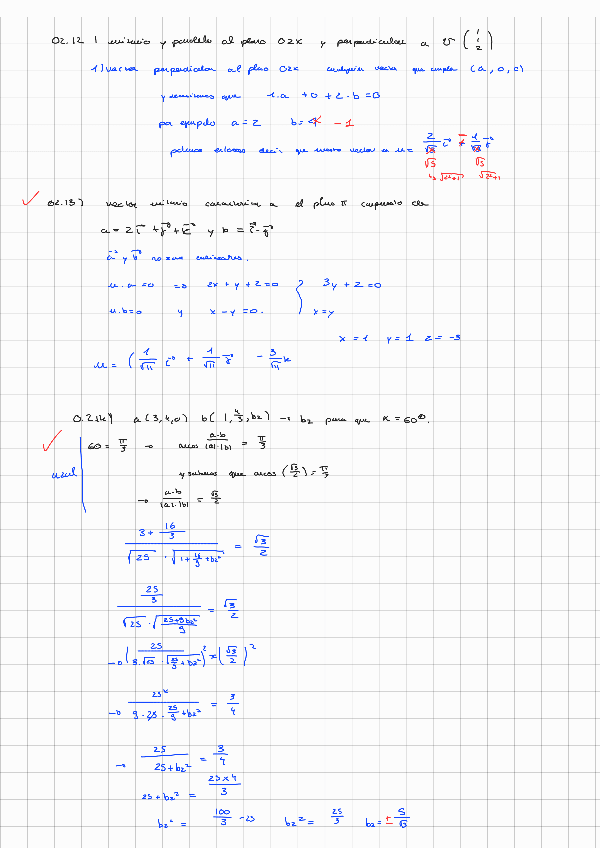 02.12 1 unitario y paralelo al plano OZX y perpendicular a v (1 1 2)
1) vector perpendicular al plano OZX cualquier vector que cumpla (a, 0, c)
y sabemos que 1·a + 0 + 2·b = 0
por ejemplo a = 2 b = -1
podemos entonces decir que nuestro vector u = 2/√5 i - 1/√5
√5 √5
√2²+1² √2²+1
02.13) vector unitario característico a el plano π compuesto de
a = 2i + j + k y b = i - j
a y b no son colineares.
u·a = 0 => 2x + y + z = 0 } 3y + z = 0
u·b = 0 y x - y = 0. x = y
x = 1 y = 1 z = -3
u = ( 1/√11 i + 1/√11 j - 3/√11 k
0.21k) a (3,4,0) b( 1, 4/3, b₂) → b₂ para que α = 60°.
60 = π/3 → arcos a·b/(|a|·|b|) = π/3
usul
y sabemos que arcos (√3/2) = π/3
→ a·b/(|a|·|b|) = √3/2
3 + 16/3 / √25 · √(1 + 16/9 + b₂²) = √3/2
25/3 / √25 · √((25+9b₂²)/9) = √3/2
→ ( 25 / 3·√25 · √(25/9 + b₂²) )² = (√3/2)²
→ 25² / 9·25·25/9 + b₂² = 3/4
→ 25 / 25 + b₂² = 3/4
25 + b₂² = 25 x 4 / 3
b₂² = 100/3 - 25 b₂² = 25/3 b₂ = ± 5/√3